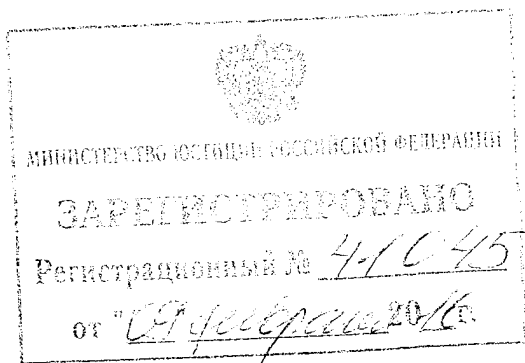 МИНИСТЕРСТВО ЮСТИЦИИ РОССИЙСКОЙ ФЕДЕРАЦИИ
ЗАРЕГИСТРИРОВАНО
Регистрационный № 41045
от "09" февраля 2016 г.